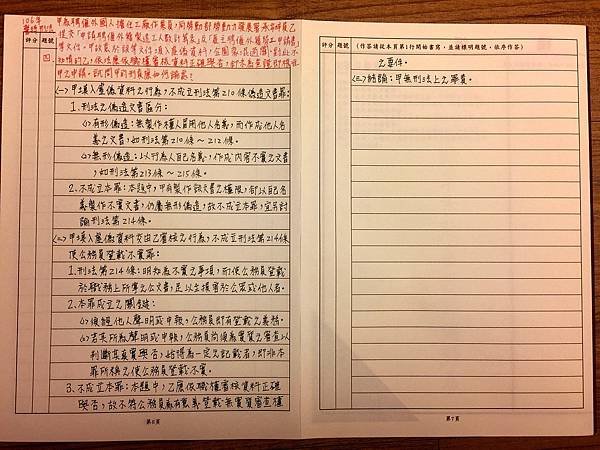 106年
警特刑法
甲為聘僱外國人擔任工廠作業員,向勞動部勞動力發展署承辦科員乙
提交「申請聘僱外籍製造工人數計算表」及「雇主聘僱外籍勞工申請書」
等文件。甲故意於該等文件填入虛偽資料,
不知情的乙,依法應依職權審核資料正確與否,
甲之申請。試問甲的刑責應如何論處?
評分 題號
(一)甲填入虛偽資料之行為,不成立刑法第210條偽造文書罪:
1.刑法之偽造文書區分:
(1)有形偽造:無製作權人冒用他人名義,而作成他人名
義之文書,如刑法第210條~212條。
(2)無形偽造:以行為人自己名義,作成內容不實之文書
,如刑法第213條~215條。
2.不成立本罪:本題中,甲有製作該文書之權限,卻以自己名
義製作不實文書,仍屬無形偽造,故不成立本罪,宜另討
論刑法第214條。
(二)甲填入虛偽資料交由乙審核之行為,不成立刑法第214條
使公務員登載不實罪:
1.刑法第214條:明知為不實之事項,而使公務員登載
於職務上所掌之公文書,足以生損害於公眾或他人者。
2.本罪成立之關鍵:
(1)須經他人聲明或申報,公務員即有登載之義務。
(2)若其所為聲明或申報,公務員尚須為實質之審查以
判斷其真實與否,始得為一定之記載者,即非本
罪所稱之使公務員登載不實。
3.不成立本罪:本題中,乙應依職權審核資料正確
與否,故不符公務員有義務登載無實質審查權
第6頁
評分 題號 (作答請從本頁第1行開始書寫,並請標明題號,依序作答)
之要件。
(三)結論:甲無刑法上之罪責。
第7頁